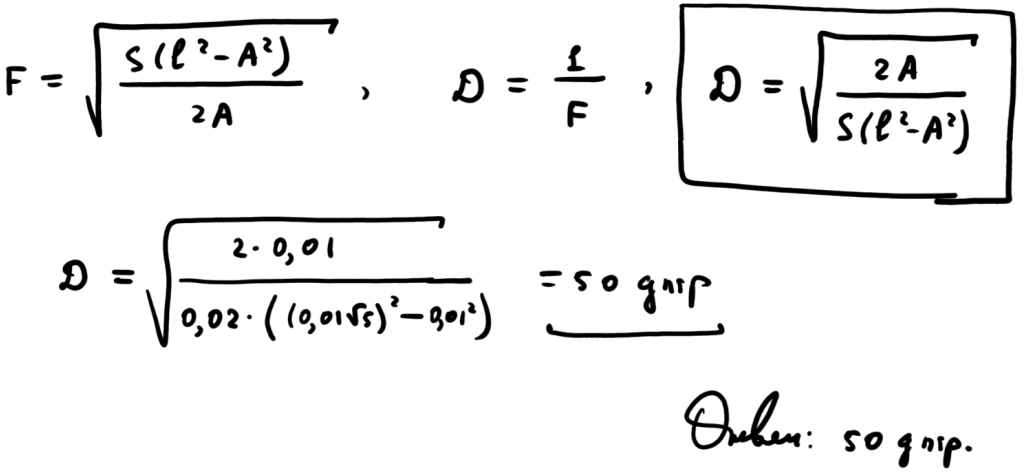 F = √(S(ℓ²-A²) / 2A) , D = 1/F , D = √(2A / S(ℓ²-A²))
D = √(2·0,01 / 0,02·((0,01√5)²-0,01²)) = 50 дптр
Ответ: 50 дптр.